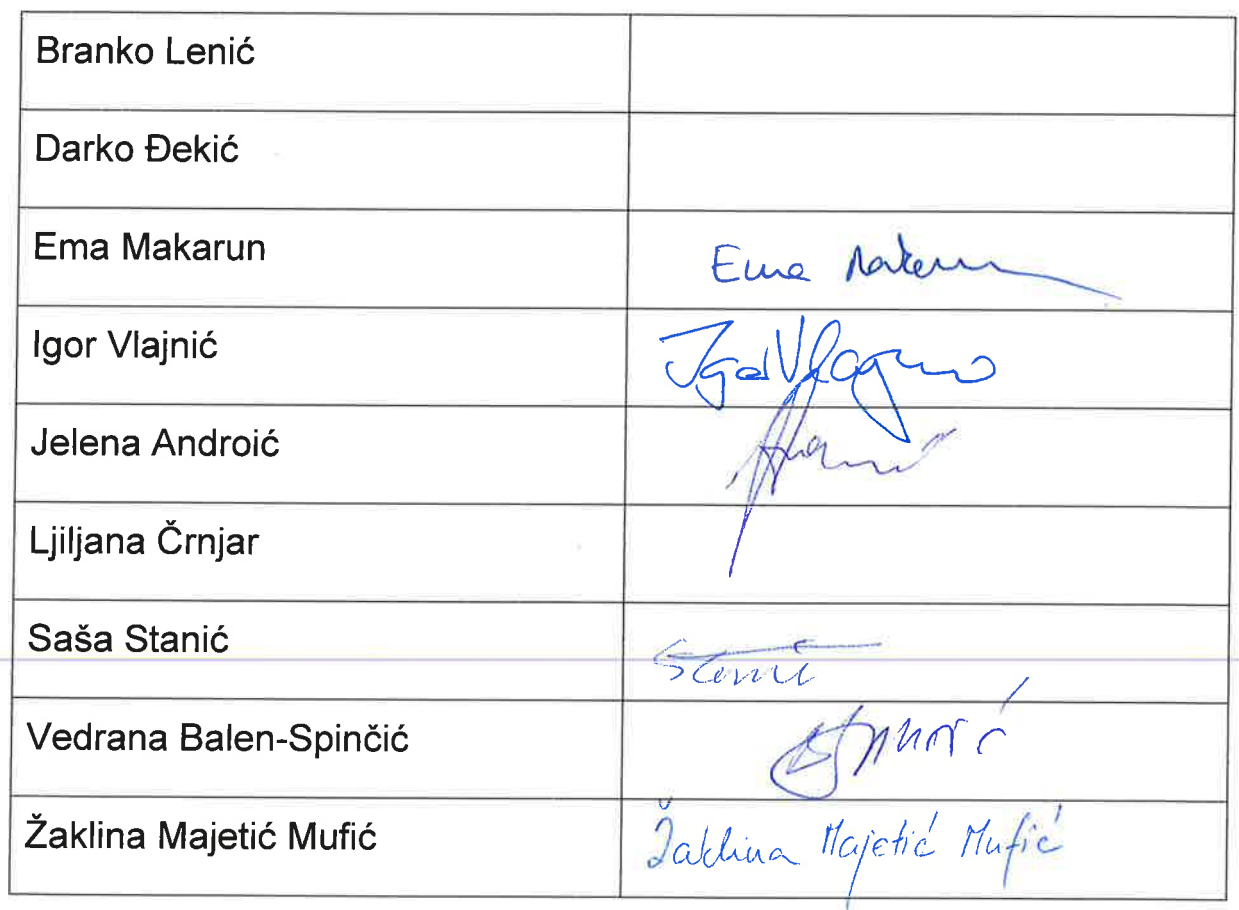 Branko Lenić
Darko Đekić
Ema Makarun Ema Makarun
Igor Vlajnić Igor Vlajnić
Jelena Androić
Ljiljana Črnjar
Saša Stanić Stanić
Vedrana Balen-Spinčić
Žaklina Majetić Mufić Žaklina Majetić Mufić